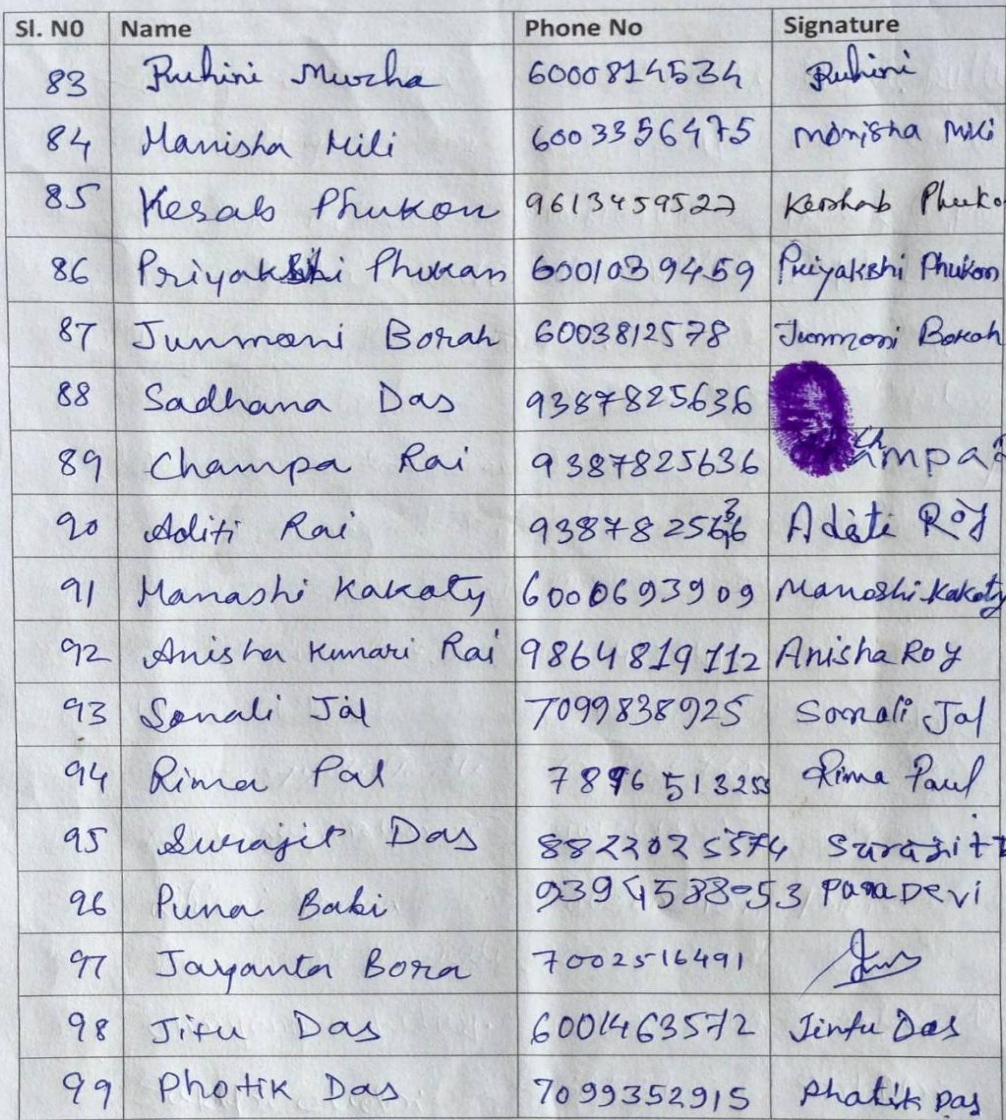 Sl. N0 Name Phone No Signature
83 Ruhini Murha 6000814534 Ruhini
84 Manisha Mili 6003356475 Monisha Mili
85 Kesab Phukon 9613459527 Keshab Phuko
86 Priyakshi Phukan 6001039459 Priyakshi Phukon
87 Junmoni Borah 6003812578 Junmoni Borah
88 Sadhana Das 9387825636
89 Champa Rai 9387825636 Champa
90 Aditi Rai Aditi Roy
91 Manashi Kakaty 6000693909 Manashi Kakoty
92 Anisha Kumari Rai 9864819112 Anisha Roy
93 Sonali Jal 7099838925 Sonali Jal
94 Rima Pal 7896513255 Rima Paul
95 Surajit Das 8822025574 Surajit
96 Puna Babi Puna Devi
97 Jayanta Bora 7002516491
98 Jitu Das 6001463572 Jintu Das
99 Photik Das 7099352915 Phatik Das